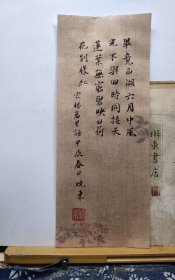 畢竟西湖六月中風
光不與四時同接天
蓮葉無窮碧映日荷
花別樣紅 宋楊萬里詩甲辰春日曉東